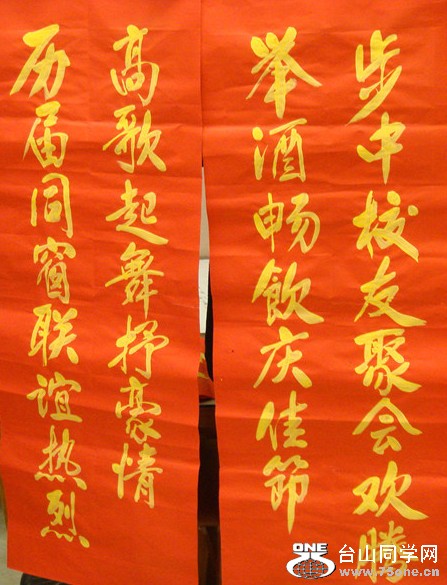 步中校友聚会欢腾
举酒畅飲庆佳節
高歌起舞抒豪情
历届同窗联谊热烈
ONE 台山同学网
www.75one.cn